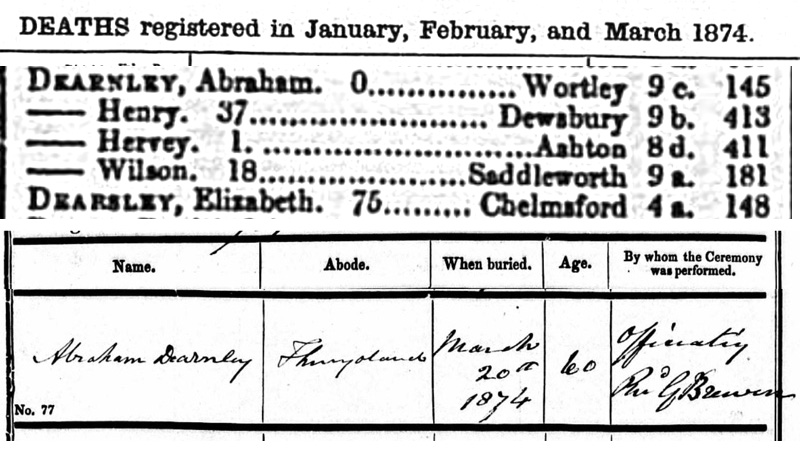 DEATHS registered in January, February, and March 1874.
DEARNLEY, Abraham. 0............... Wortley 9 c. 145
—— Henry. 37........................ Dewsbury 9 b. 413
—— Hervey. 1. ........................... Ashton 8 d. 411
—— Wilson. 18..................... Saddleworth 9 a. 181
DEARSLEY, Elizabeth. 75......... Chelmsford 4 a. 148
Name. Abode. When buried. Age. By whom the Ceremony
was performed.
Abraham Dearnley Thurgoland March
20th
1874 60 Officiatig
Revd G Brewin
No. 77